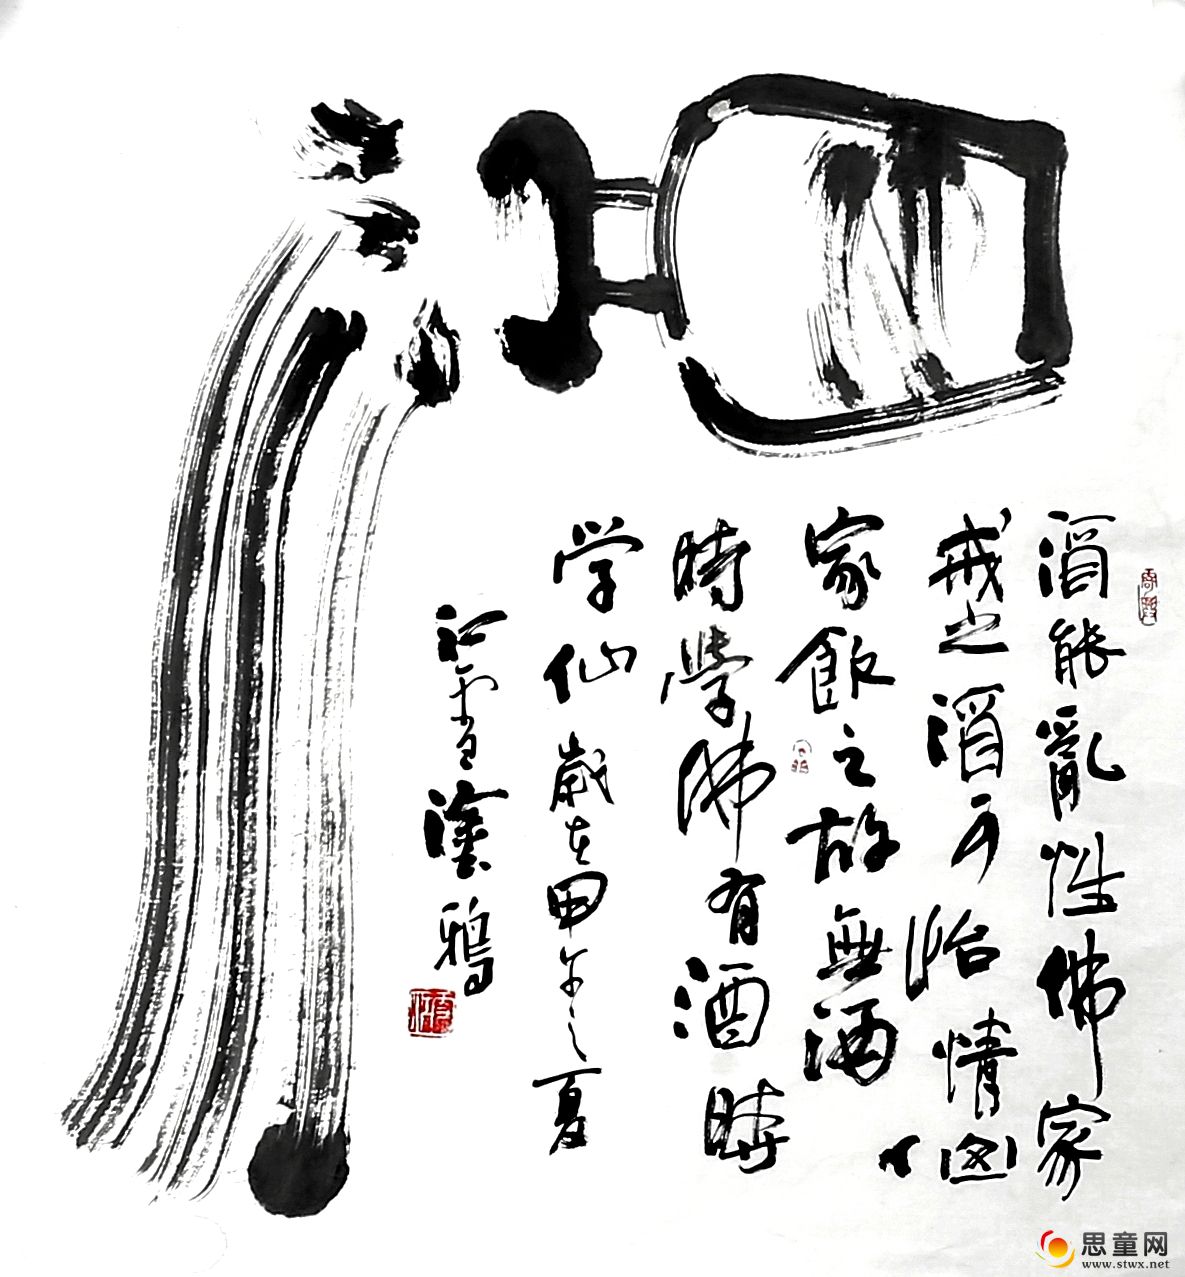 酒
酒能亂性佛家
戒之酒可怡情仙
家飲之故無酒
時學佛有酒時
学仙 歲在甲午之夏
江雪塗鴉
思童网
www.stwx.net